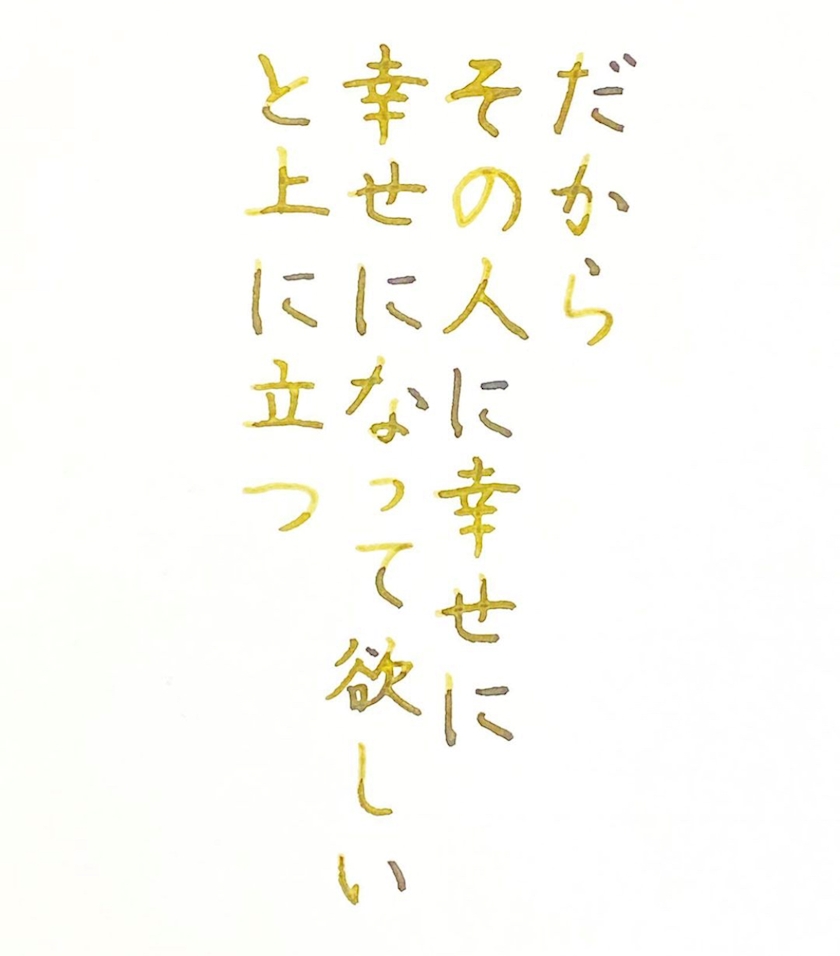 だから
その人に幸せに
幸せになって欲しい
と上に立つ